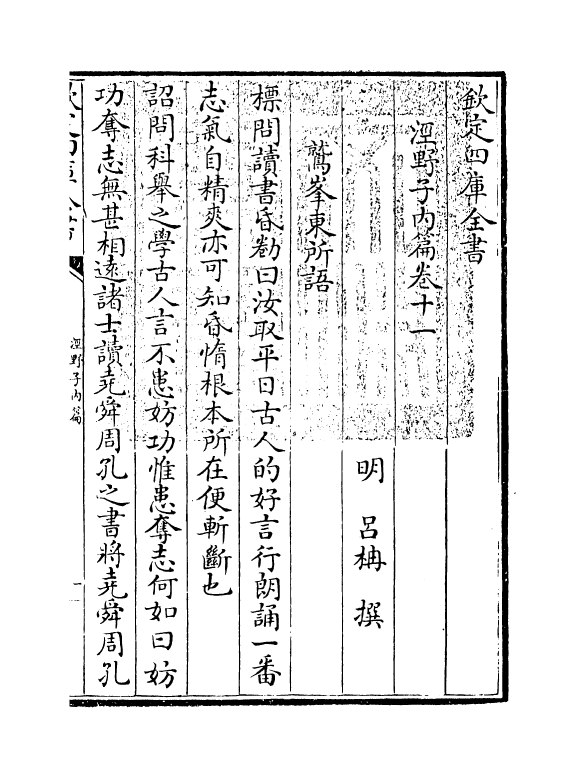 欽定四庫全書
涇野子內篇卷十一
明 呂柟 撰
鷲峯東所語
標問讀書昏勌曰汝取平日古人的好言行朗誦一番
志氣自精爽亦可知昏惰根本所在便斬斷也
詔問科舉之學古人言不患妨功惟患奪志何如曰妨
功奪志無甚相遠諸士讀堯舜周孔之書將堯舜周孔
欽定四庫全書
涇野子內篇
一